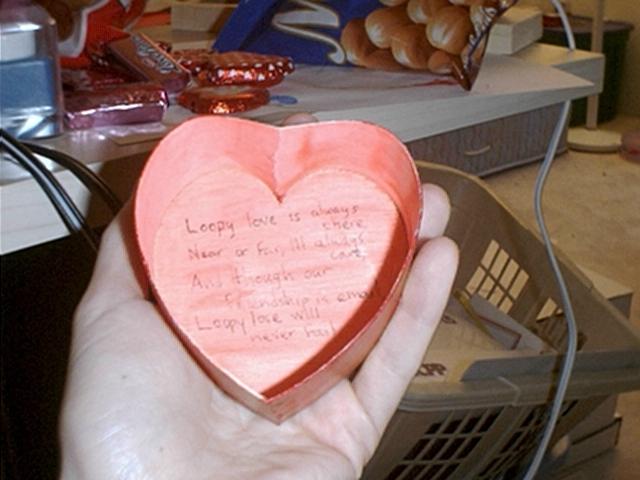 Loopy love is always
there
Near or far, I'll always
care
And though our
friendship is email
Loopy love will
never fail